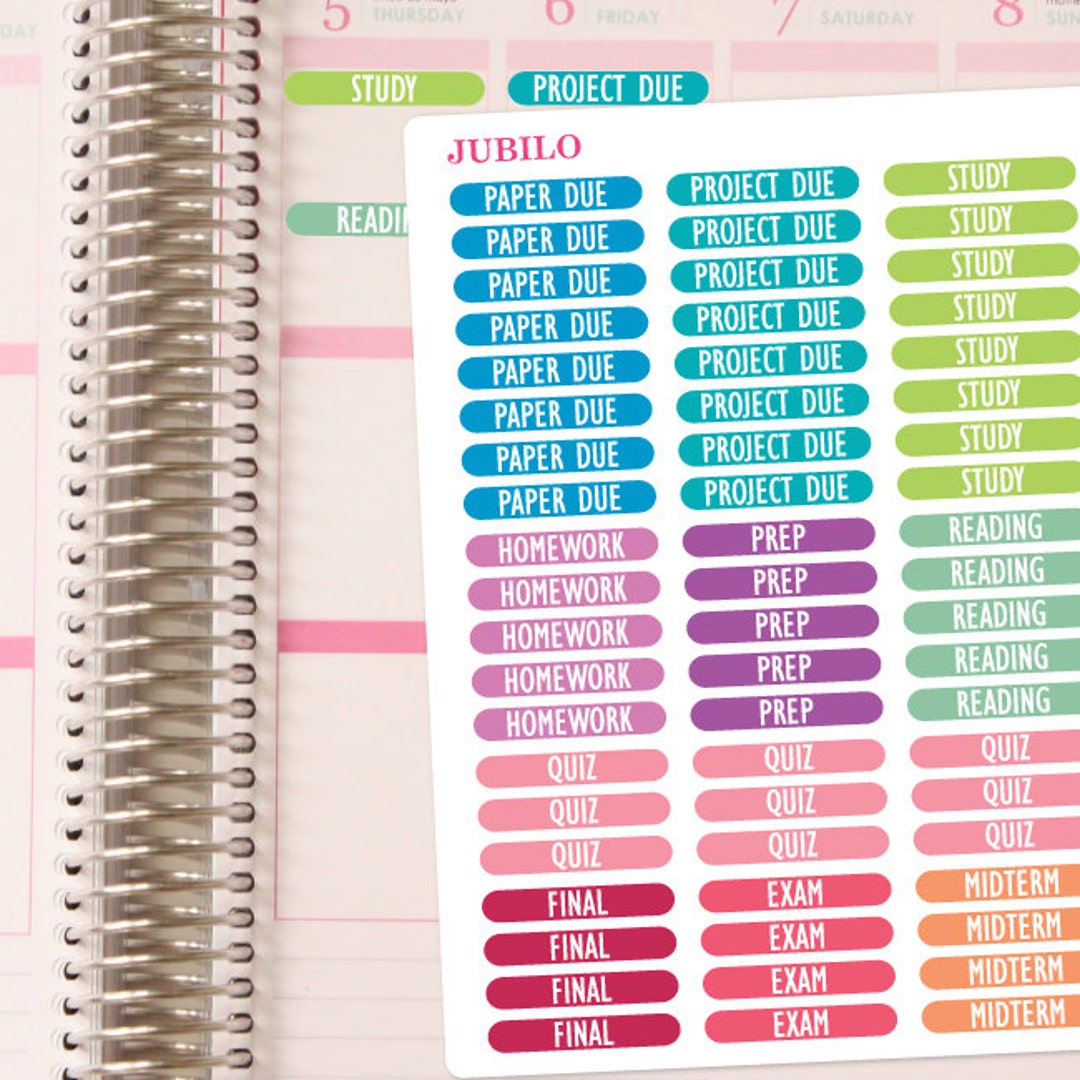 DAY
5 THURSDAY 6 FRIDAY 7 SATURDAY 8 SUN
STUDY PROJECT DUE
READIN
JUBILO
PAPER DUE PROJECT DUE STUDY
PAPER DUE PROJECT DUE STUDY
PAPER DUE PROJECT DUE STUDY
PAPER DUE PROJECT DUE STUDY
PAPER DUE PROJECT DUE STUDY
PAPER DUE PROJECT DUE STUDY
PAPER DUE PROJECT DUE STUDY
PAPER DUE PROJECT DUE STUDY
HOMEWORK PREP READING
HOMEWORK PREP READING
HOMEWORK PREP READING
HOMEWORK PREP READING
HOMEWORK PREP READING
QUIZ QUIZ QUIZ
QUIZ QUIZ QUIZ
QUIZ QUIZ QUIZ
FINAL EXAM MIDTERM
FINAL EXAM MIDTERM
FINAL EXAM MIDTERM
FINAL EXAM MIDTERM